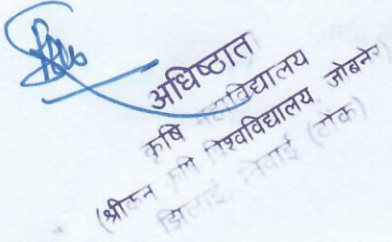 अधिष्ठात
कृषि महाविद्यालय
(श्रीकन कृषि विश्वविद्यालय जोबनेर)
झिलाई, निवाई (टोंक)